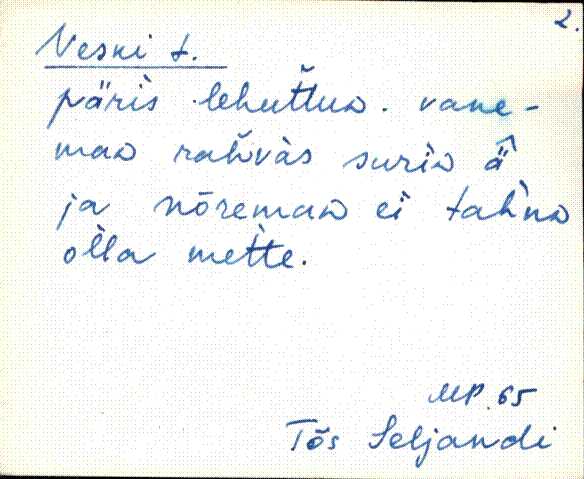 2.
Veski t.
päris lehuťtuᴅ. vane-
maᴅ rahvàs suriᴅ ä̂
ja nõremaᴅ ei tahnᴅ
olla mette.
MP. 65
Tõs Seljandi